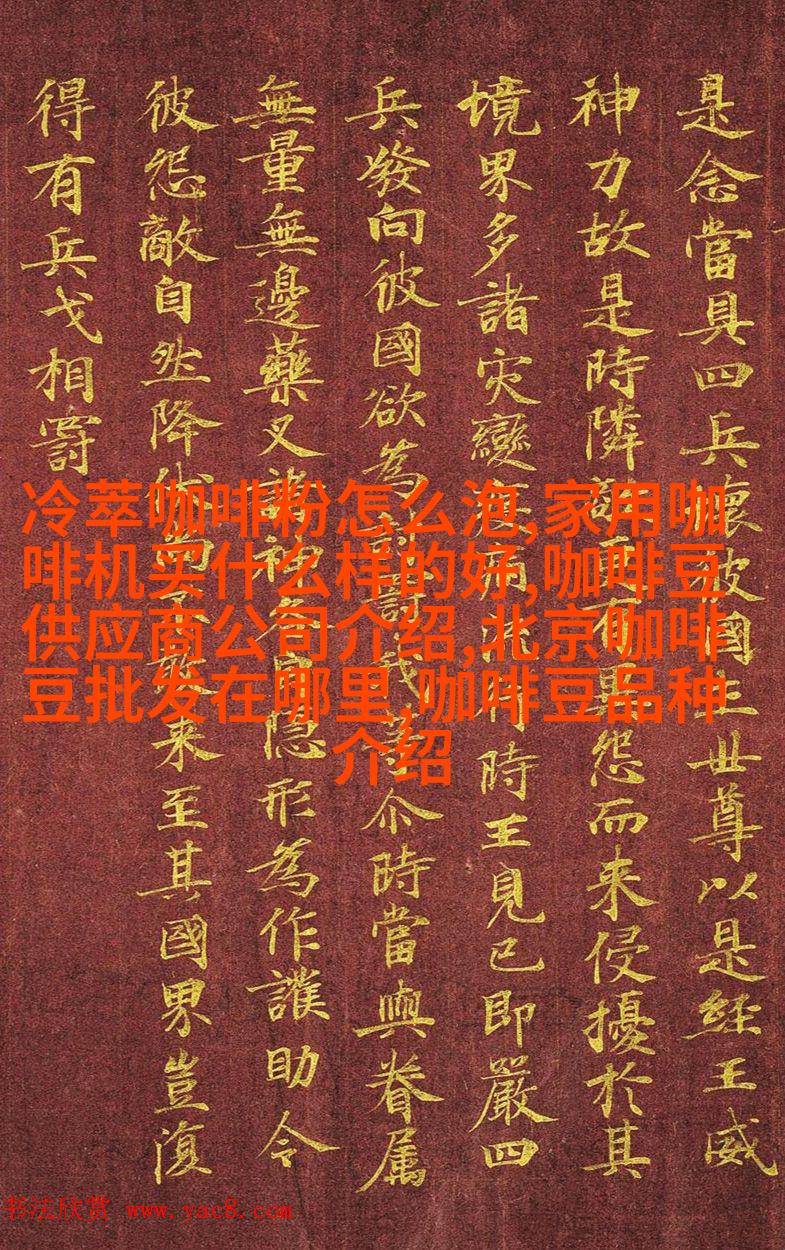 是念當具四兵壞彼國土世尊以是經王威
神力故是時隣敵更有異怨而来侵擾於其
境界多諸灾變疫癘流行時王見已即嚴四
兵發向彼國欲為討罰我等尒時當與眷属
無量無邊藥叉諸神各自隱形為作護助令
彼怨敵自然降伏尚不敢来至其國界豈復
得有兵戈相罸
冷萃咖啡粉怎么泡,家用咖
啡机买什么样的好,咖啡豆
供应商公司介绍,北京咖啡
豆批发在哪里,咖啡豆品种
介绍
书法欣赏 www.yac8.com